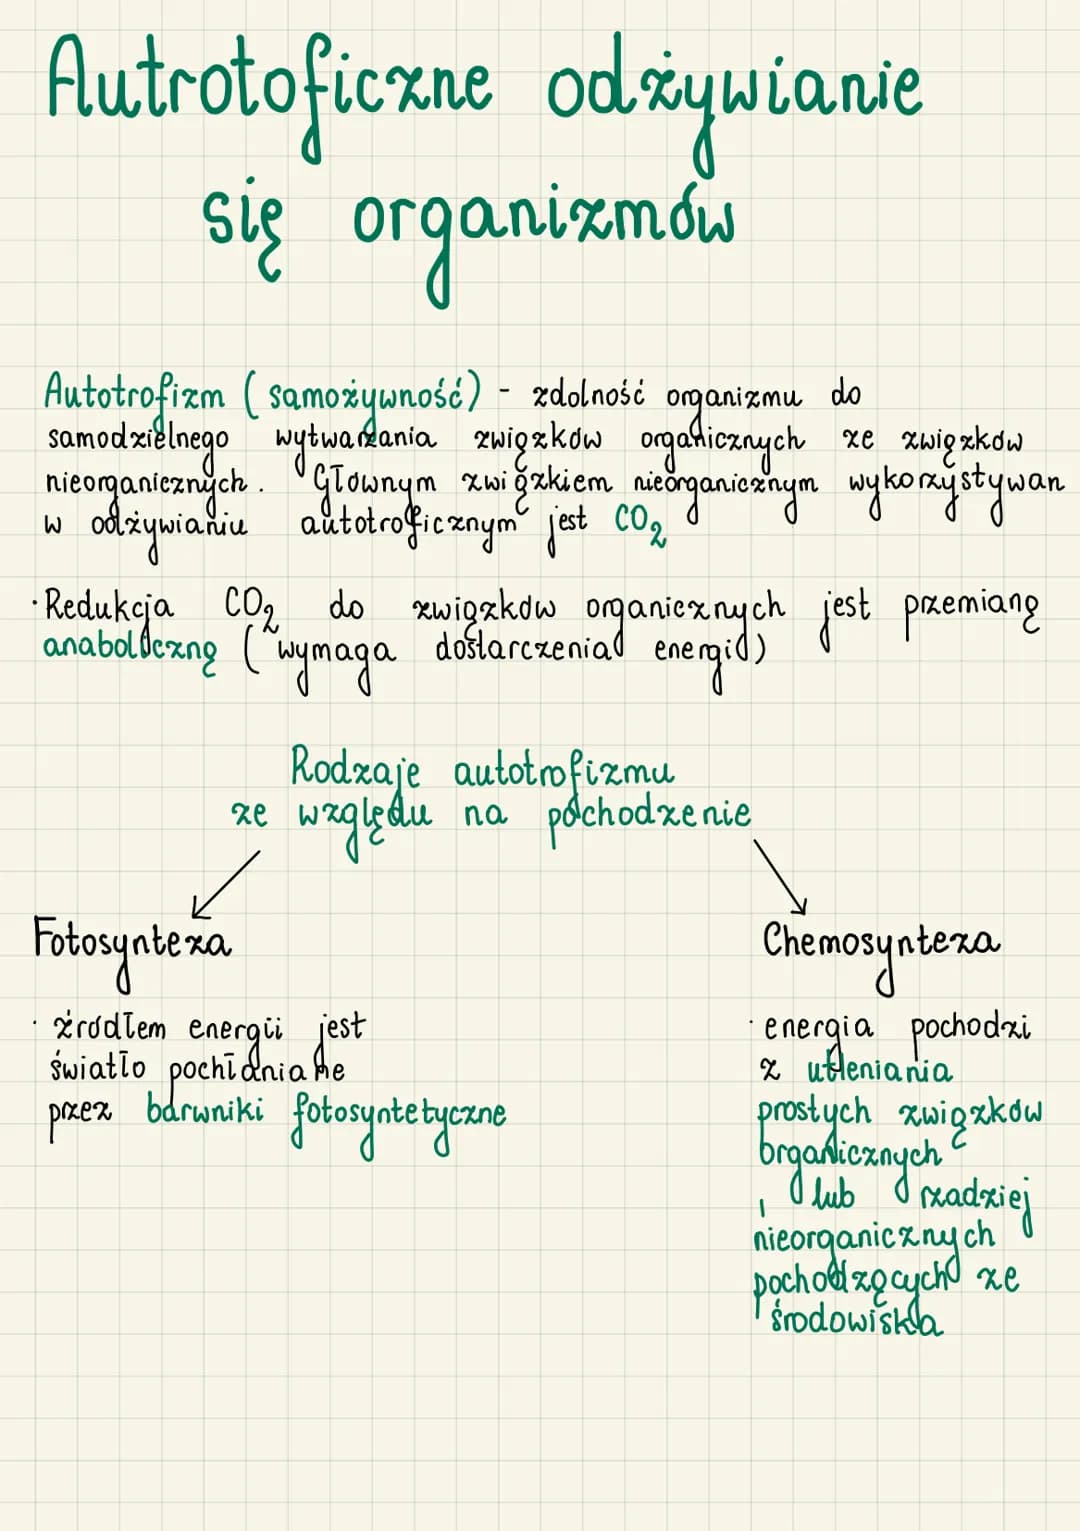 Autrotoficzne odżywianie
się organizmów
Autotrofizm (samożywność) - zdolność organizmu do
samodzielnego wytwarzania związków organicznych ze związków
nieorganicznych. Głównym związkiem nieorganicznym wykorzystywan
w odżywianiu autotroficznym jest CO₂
· Redukcja CO₂ do związków organicznych jest przemianą
anaboliczną (wymaga dostarczenia energii)
Rodzaje autotrofizmu
ze względu na pochodzenie
Fotosynteza
· źródłem energii jest
światło pochłaniane
przez barwniki fotosyntetyczne
Chemosynteza
· energia pochodzi
z utleniania
prostych związków
organicznych
, lub rzadziej
nieorganicznych
pochodzących ze
środowiska